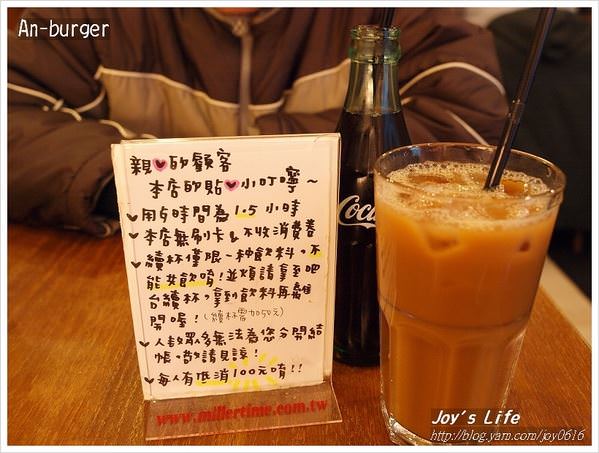 An-burger
親♥的顧客
本店的貼♥小叮嚀～
♥用歺時間為1.5小時
♥本店無刷卡&不收消費卷
♥續杯僅限一种飲料，不
能女飲唷！並煩請拿至吧
台續杯，拿到飲料再離
開喔！(續杯需加50元)
♥人數眾多無法為您分開結
帳，敬請見諒！
♥每人有低消100元唷!!
www.millertime.com.tw
Coca
Joy's Life
http://blog.yam.com/joy0616